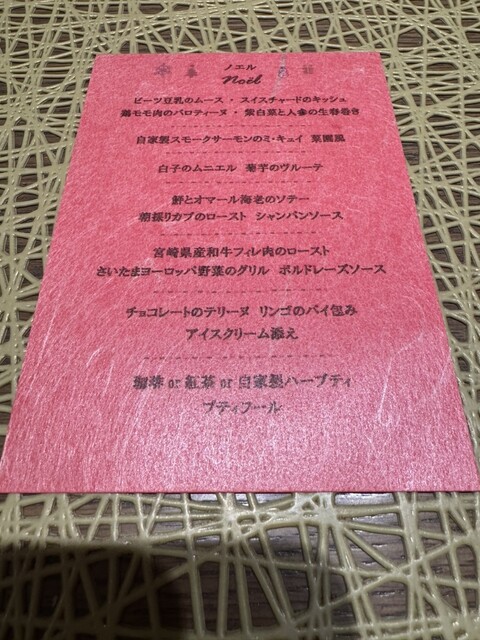 ノエル
Noël
ビーツ豆乳のムース ・ スイスチャードのキッシュ
鶏モモ肉のバロティーヌ ・ 紫白菜と人参の生春巻き
自家製スモークサーモンのミ・キュイ 菜園風
白子のムニエル 菊芋のヴルーテ
鮃とオマール海老のソテー
朝採りカブのロースト シャンパンソース
宮崎県産和牛フィレ肉のロースト
さいたまヨーロッパ野菜のグリル ボルドレーズソース
チョコレートのテリーヌ リンゴのパイ包み
アイスクリーム添え
珈琲 or 紅茶 or 自家製ハーブティ
プティフール